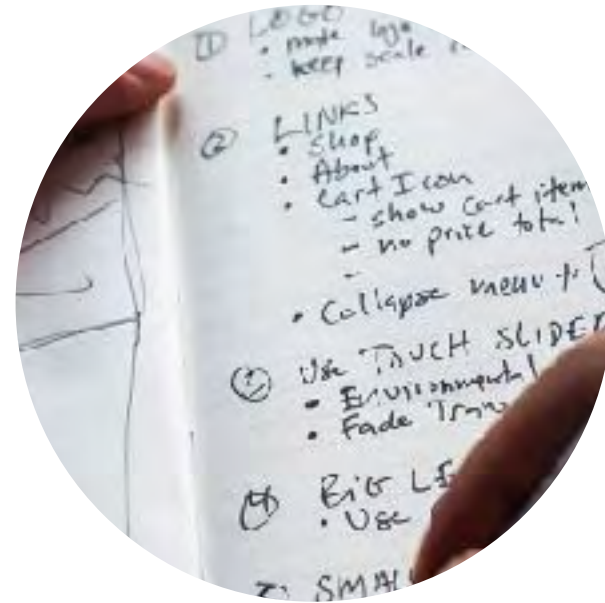 ① LOGO
• make logo
- keep scale
② LINKS
• Shop
• About
• Cart Icon
- show cart item
- no price total
-
• Collapse menu
③ Use TOUCH SLIDE
• Environmental
• Fade
④ BIG
• Use
SMALL